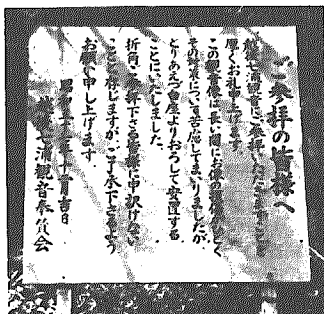 ご参拝の皆様へ
観音にご参拝いただきまして
厚くお礼申し上げます
この観音像は長い間にお像の損傷がひどく
その修復について苦慮してまいりましたが
とりあえず台座よりおろして安置する
ことにいたしました
折角ご参拝下さる皆様に申訳けない
ことと存じますがご了承下さるよう
お願い申し上げます
昭和五十年十一月吉日
浦観音奉賛会